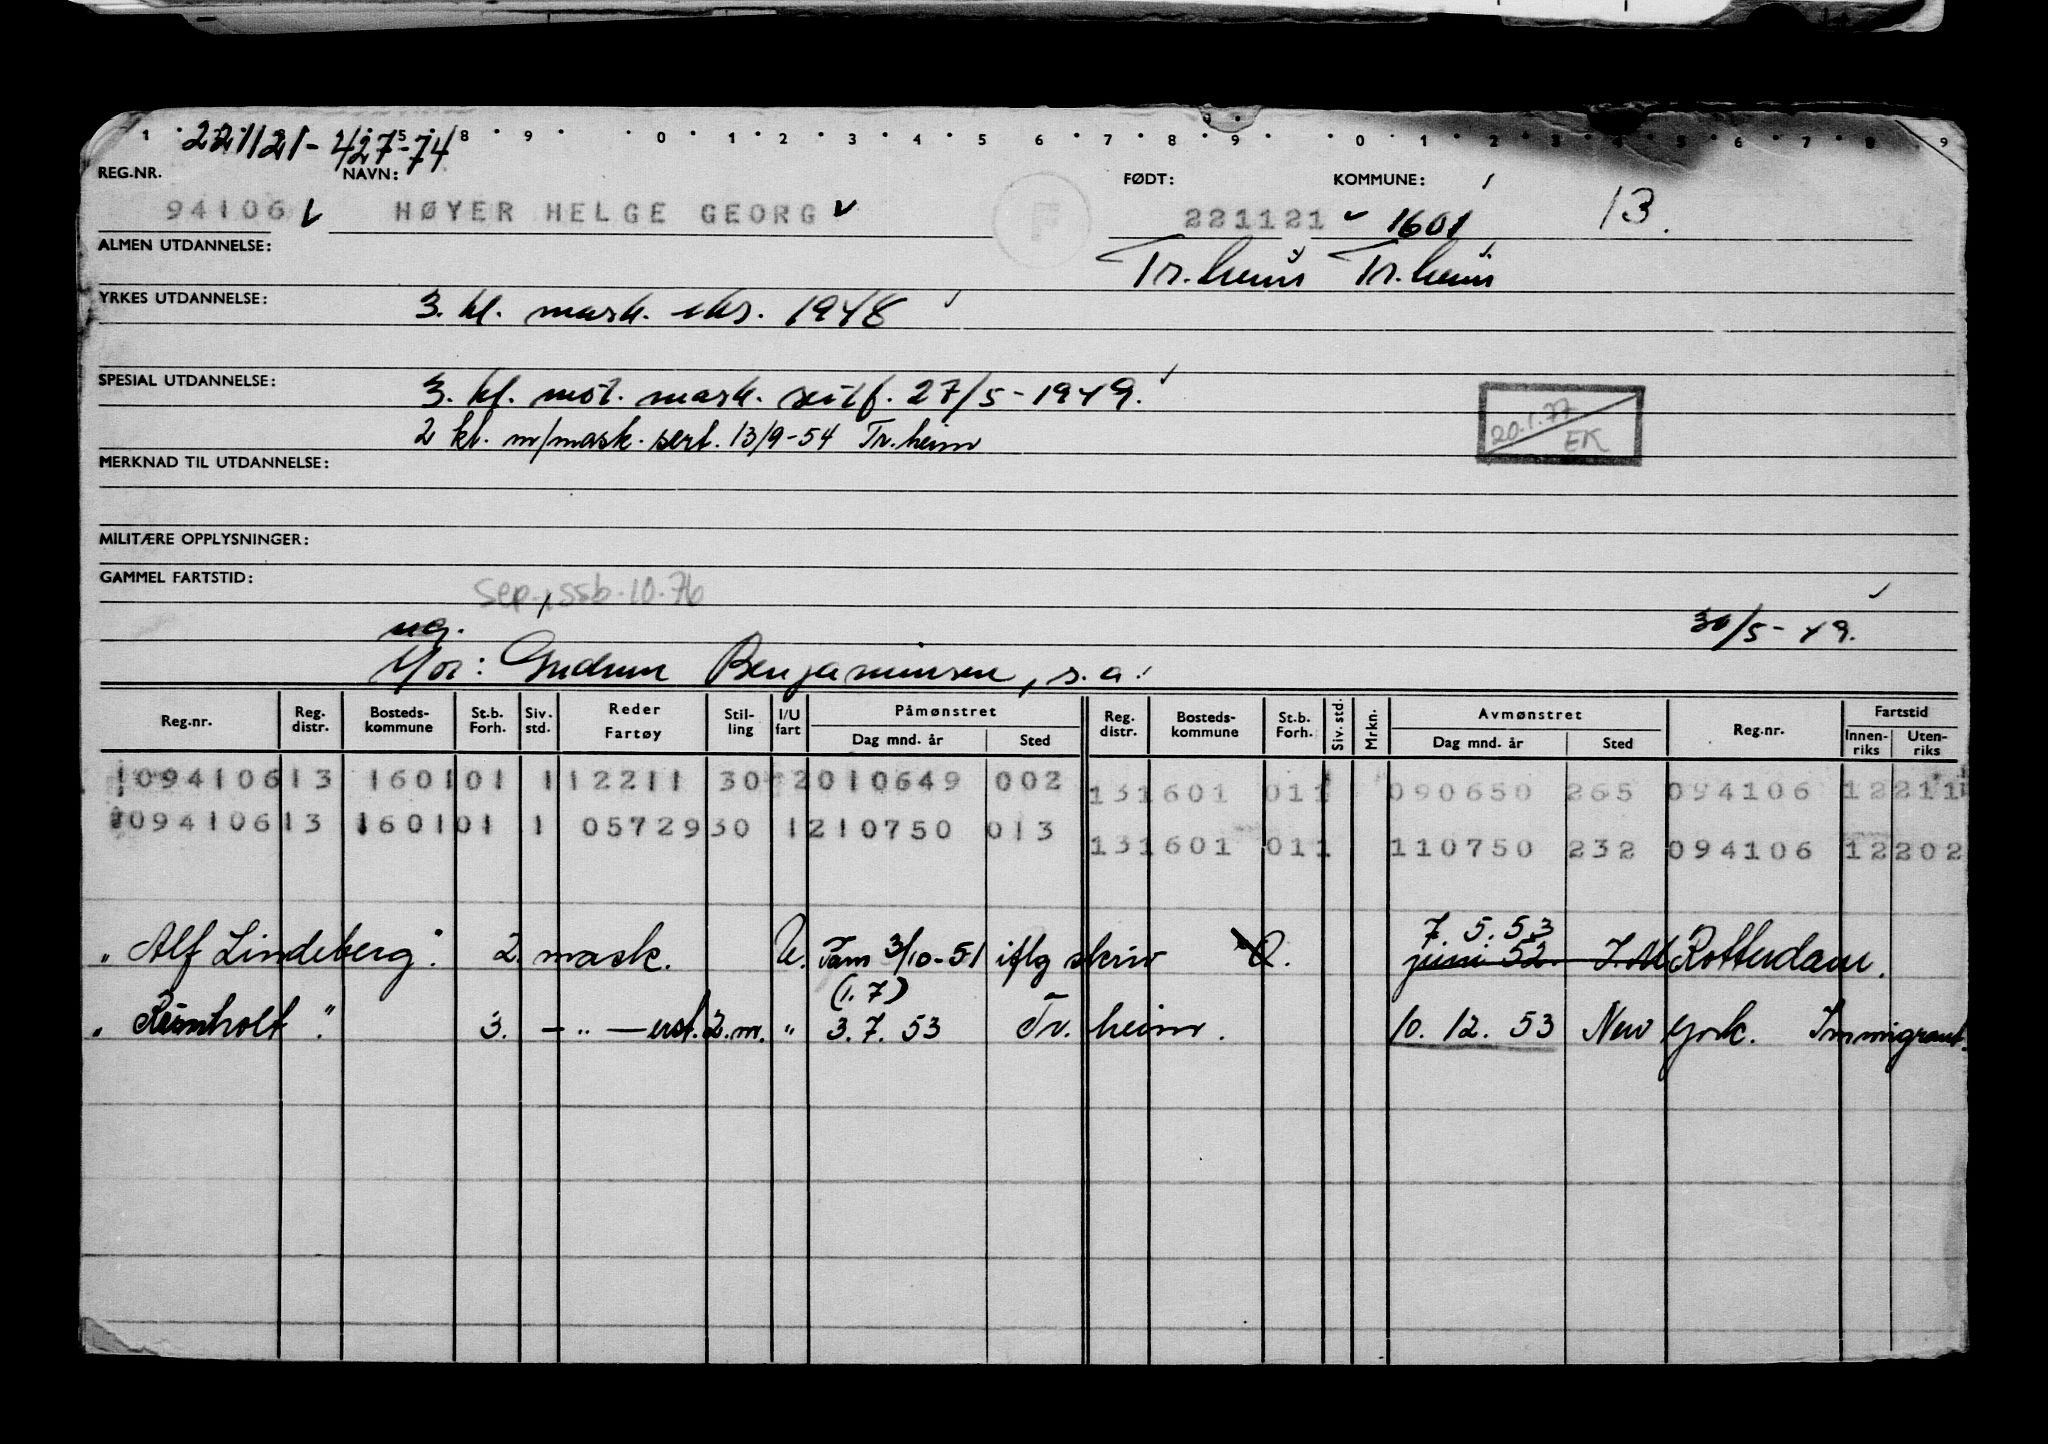 1 2 3 4 5 6 7 8 9 0 1 2 3 4 5 6 7 8 9 0 1 2 3 4 5 6 7 8 9
221121-427-74
REG.NR. NAVN: FØDT: KOMMUNE:
94106 HØYER HELGE GEORG F 221121 1601 13.
ALMEN UTDANNELSE: Tr.heim Tr.heim
YRKES UTDANNELSE: 3. kl. mask. eks. 1948
SPESIAL UTDANNELSE: 3. kl. mot. mask. sertf. 27/5-1949.
2 kl. m/mask. sert. 13/9-54 Tr.heim
20.1.77 EK
MERKNAD TIL UTDANNELSE:
MILITÆRE OPPLYSNINGER:
GAMMEL FARTSTID:
sep., ssb. 10.76
ug. 30/5-49.
Mor: Gudrun Benjaminsen, s.a.
Reg.nr. Reg. distr. Bosteds-kommune St.b. Forh. Siv. std. Reder Fartøy Stil-ling I/U fart Påmønstret Dag mnd. år Sted Reg. distr. Bosteds-kommune St.b. Forh. Siv. std. Mrkn. Avmønstret Dag mnd. år Sted Reg.nr. Fartstid Innen-riks Uten-riks
109410613 160101 112211 30 2010649 002 131601 011 090650 265 094106 12211
09410613 160101 1 05729 30 1210750 013 131601 011 110750 232 094106 12202
"Alf Lindeberg". 2. mask. U. Fam 3/10-51 iflg skriv Q. 7.5.53 juni 52. I.M Rotterdam.
(1.7)
"Reinholt". 3. - " - erst. 2. m. " 3.7.53 Tr. heim. 10.12.53 New York. Immigrant.